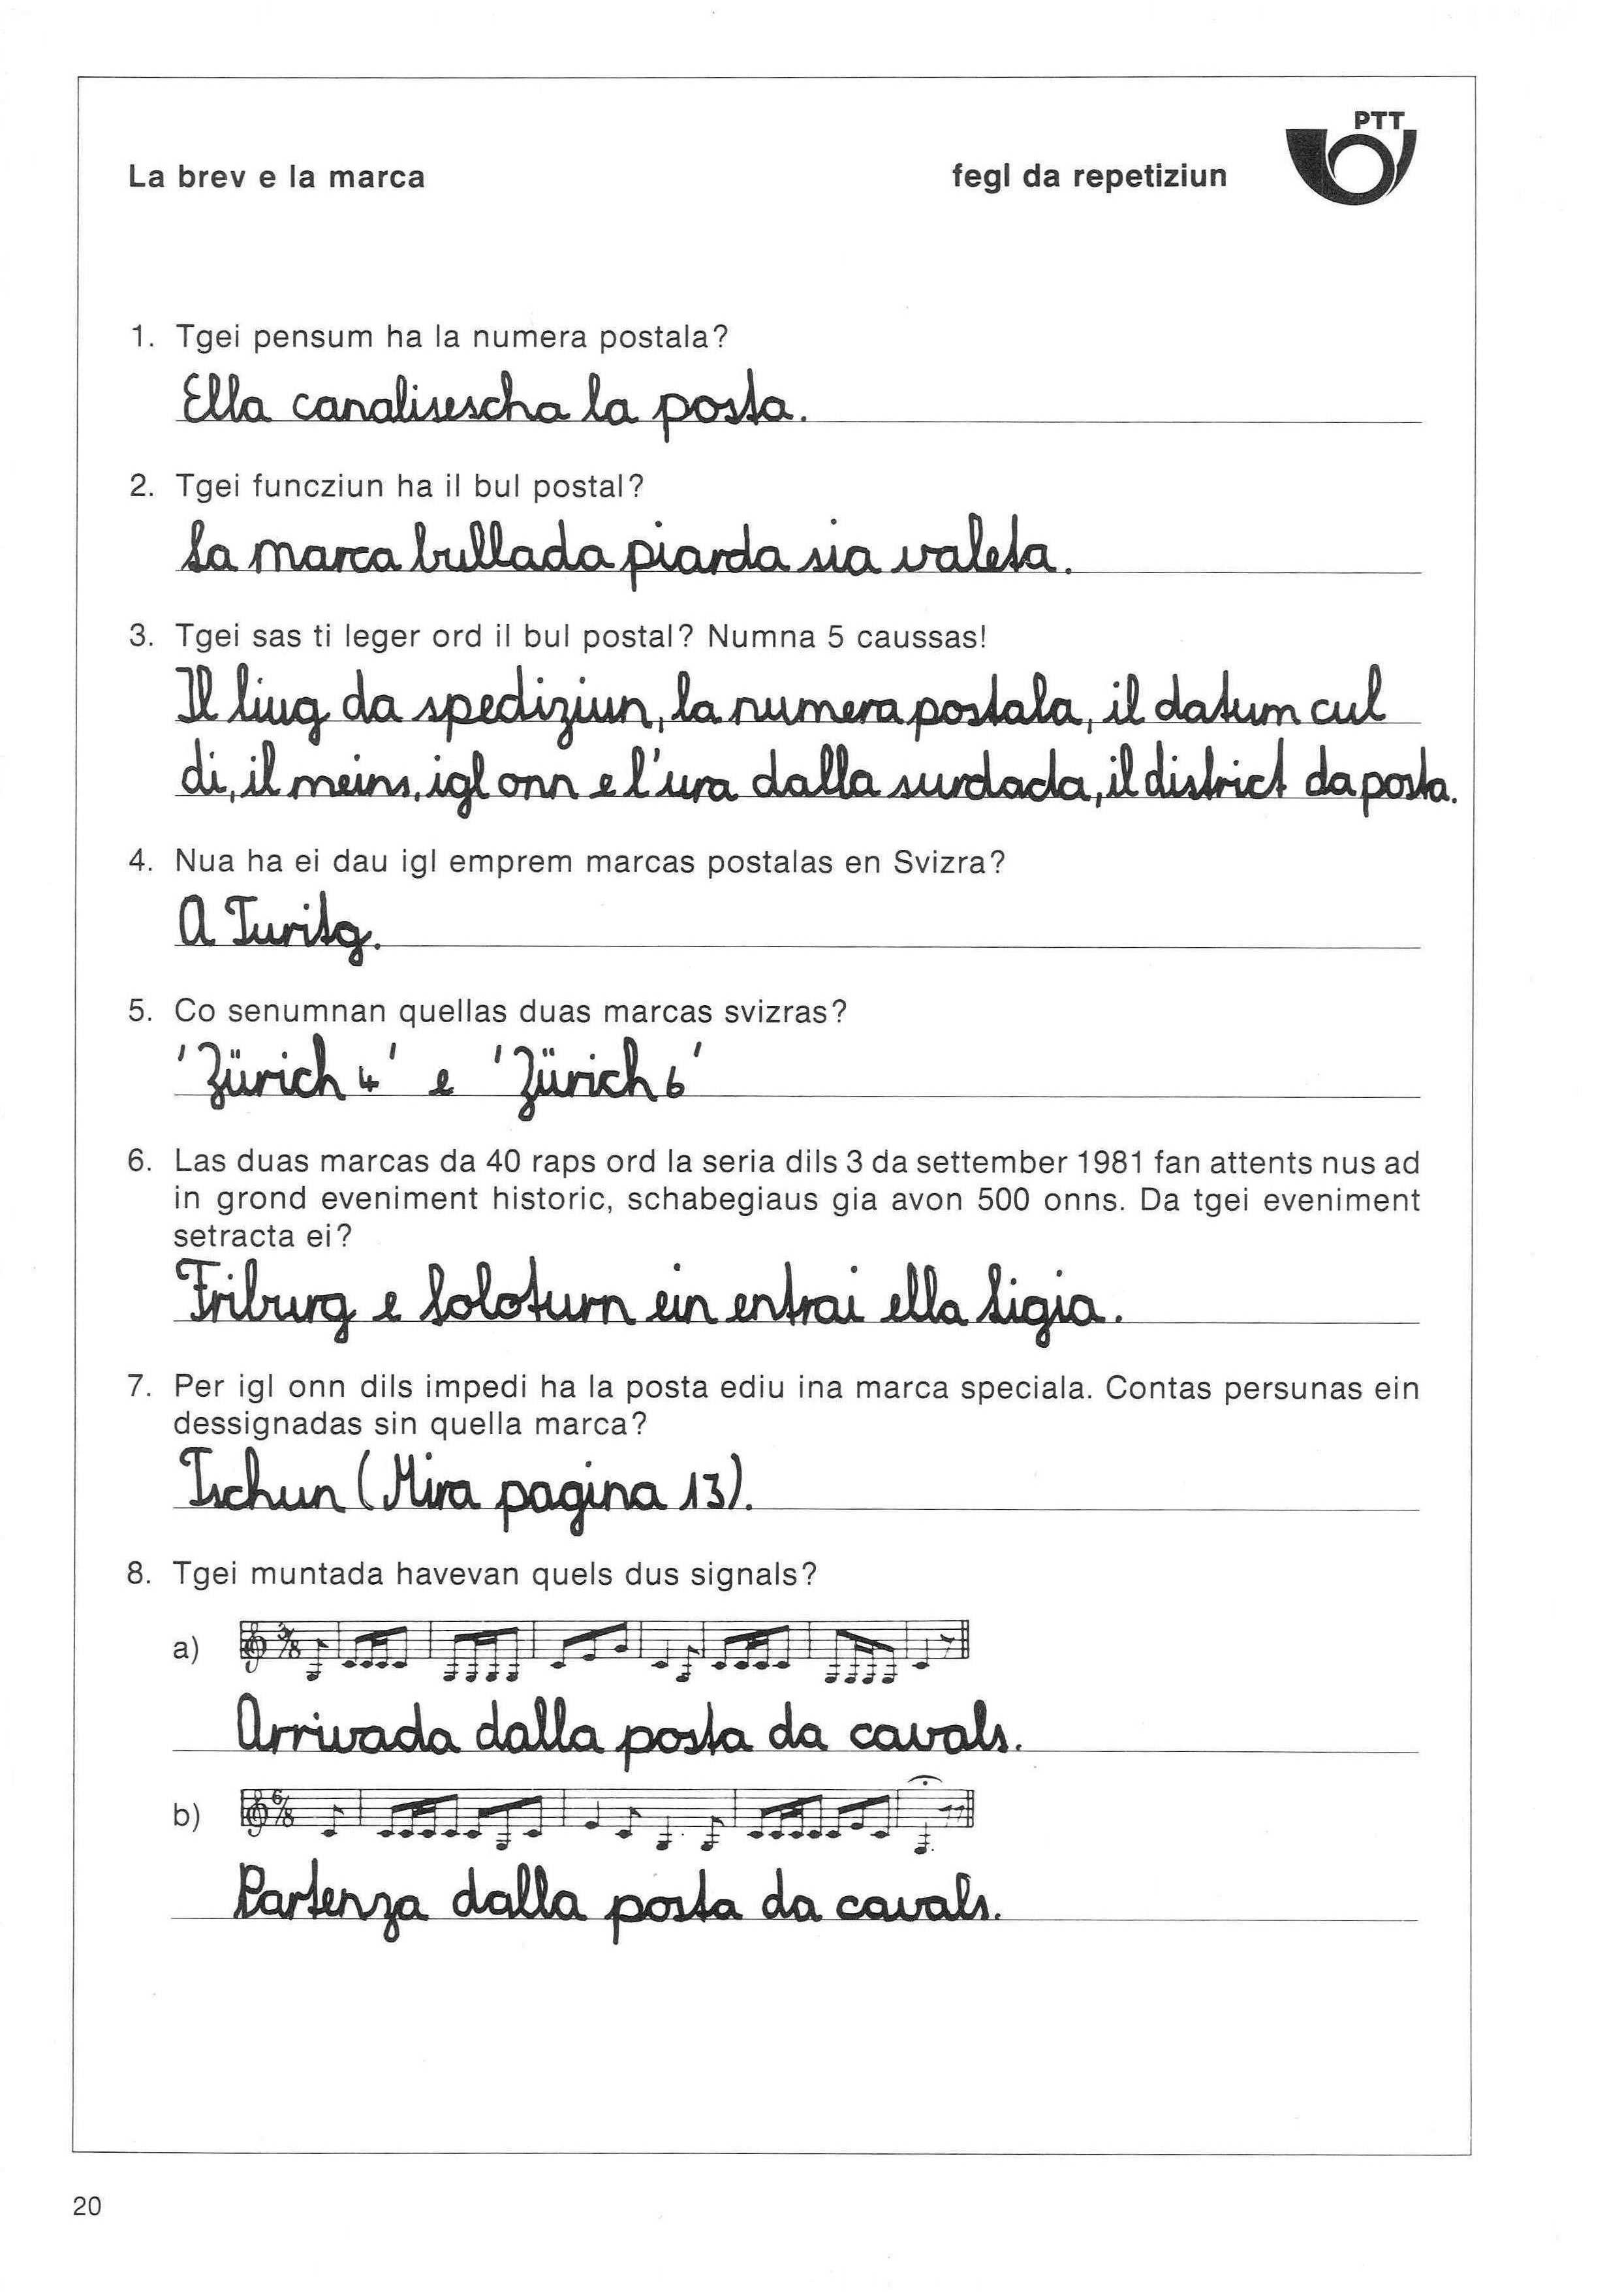 PTT
La brev e la marca fegl da repetiziun
1. Tgei pensum ha la numera postala?
Ella canalisescha la posta.
2. Tgei funcziun ha il bul postal?
La marca bullada piarda sia valeta.
3. Tgei sas ti leger ord il bul postal? Numna 5 caussas!
Il liug da spediziun, la numera postala, il datum cul
di, il meins, igl onn e l'ura dalla surdada, il district da posta.
4. Nua ha ei dau igl emprem marcas postalas en Svizra?
A Turitg.
5. Co senumnan quellas duas marcas svizras?
'Zürich 4' e 'Zürich 6'
6. Las duas marcas da 40 raps ord la seria dils 3 da settember 1981 fan attents nus ad
in grond eveniment historic, schabegiaus gia avon 500 onns. Da tgei eveniment
setracta ei?
Friburg e Soloturn ein entrai ella Ligia.
7. Per igl onn dils impedi ha la posta ediu ina marca speciala. Contas persunas ein
dessignadas sin quella marca?
Tschun (Mira pagina 13).
8. Tgei muntada havevan quels dus signals?
a) 3/8
Arrivada dalla posta da cavals.
b) 6/8
Partenza dalla posta da cavals.
20